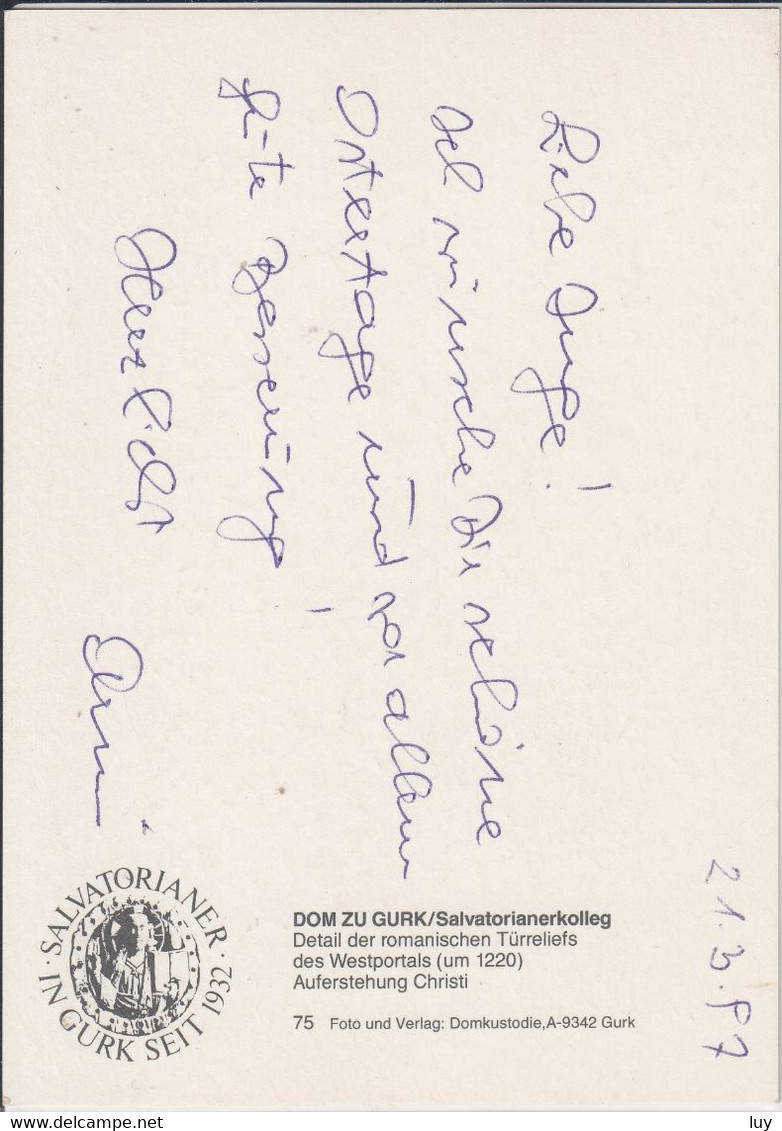 21.3.97
Liebe Inge!
ich wünsche Dir schöne
Ostertage und vor allem
gute Besserung!
Herzlichst
DOM ZU GURK/Salvatorianerkolleg
Detail der romanischen Türreliefs
des Westportals (um 1220)
Auferstehung Christi
75 Foto und Verlag: Domkustodie,A-9342 Gurk
· SALVATORIANER ·
IN GURK SEIT 1932
delcampe.net
luy